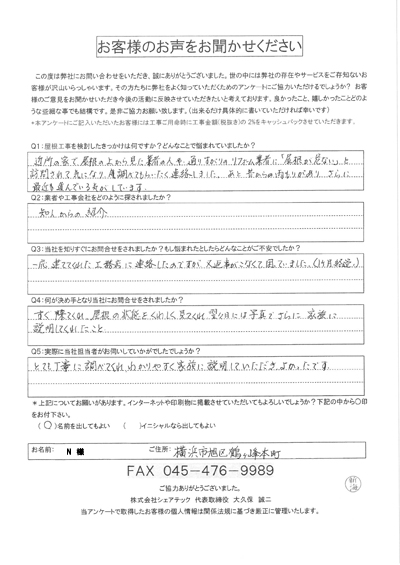 お客様のお声をお聞かせください
この度は弊社にお問い合わせをいただき、誠にありがとうございました。世の中には弊社の存在やサービスをご存知ないお
客様が沢山いらっしゃいます。その方たちに弊社をよく知っていただくためのアンケートにご協力いただけるでしょうか？ お客
様のご意見をお聞かせいただき今後の活動に反映させていただきたいと考えております。良かったこと、嬉しかったことどのよ
うな些細な事でも結構です。是非ご協力お願い致します。（出来るだけ具体的に書いていただけますと幸いです）
*本アンケートにご記入いただいたお客様には工事ご用命時に工事金額(税抜き)の2%をキャッシュバックさせていただきます。
Q1：屋根工事を検討したきっかけは何ですか？どんなことで悩まれていましたか？
近所の家で、屋根の上から見た業者の人や、通りすがりのリフォーム業者に「屋根が危ない」と
訪問されて気になり、連絡しました。あと 昔からの雨もりがあり、さらに
最近
Q2：業者や工事会社をどのように探されましたか？
知人からの紹介
Q3：当社を知りすぐにお問合せをされましたか？もし悩まれたとしたらどんなことがご不安でしたか？
一応 建ててくれた工務店に連絡したのですが、返事がこなくて困っていました。(1ヶ月経過)
Q4：何が決め手となり当社にお問合せをされましたか？
すぐ 来てくれ、屋根の状態をくわしく見てくれ、翌日には写真でさらに 家族に
説明してくれたこと
Q5：実際に当社担当者がお伺いしていかがでしたでしょうか？
とても丁寧に調べてくれ、わかりやすく家族に説明していただき、よかったです。
* 上記についてお願いがあります。インターネットや印刷物に掲載させていただいてもよろしいでしょうか？下記の中から〇印
をお付下さい。
(〇)名前を出してもよい ( )イニシャルなら出してもよい
お名前: N 様 ご住所: 横浜市旭区鶴ヶ峰本町
FAX 045-476-9989
ご協力ありがとうございました。
株式会社シェアテック 代表取締役 大久保 誠二
当アンケートで取得したお客様の個人情報は関係法規に基づき厳正に管理いたします。